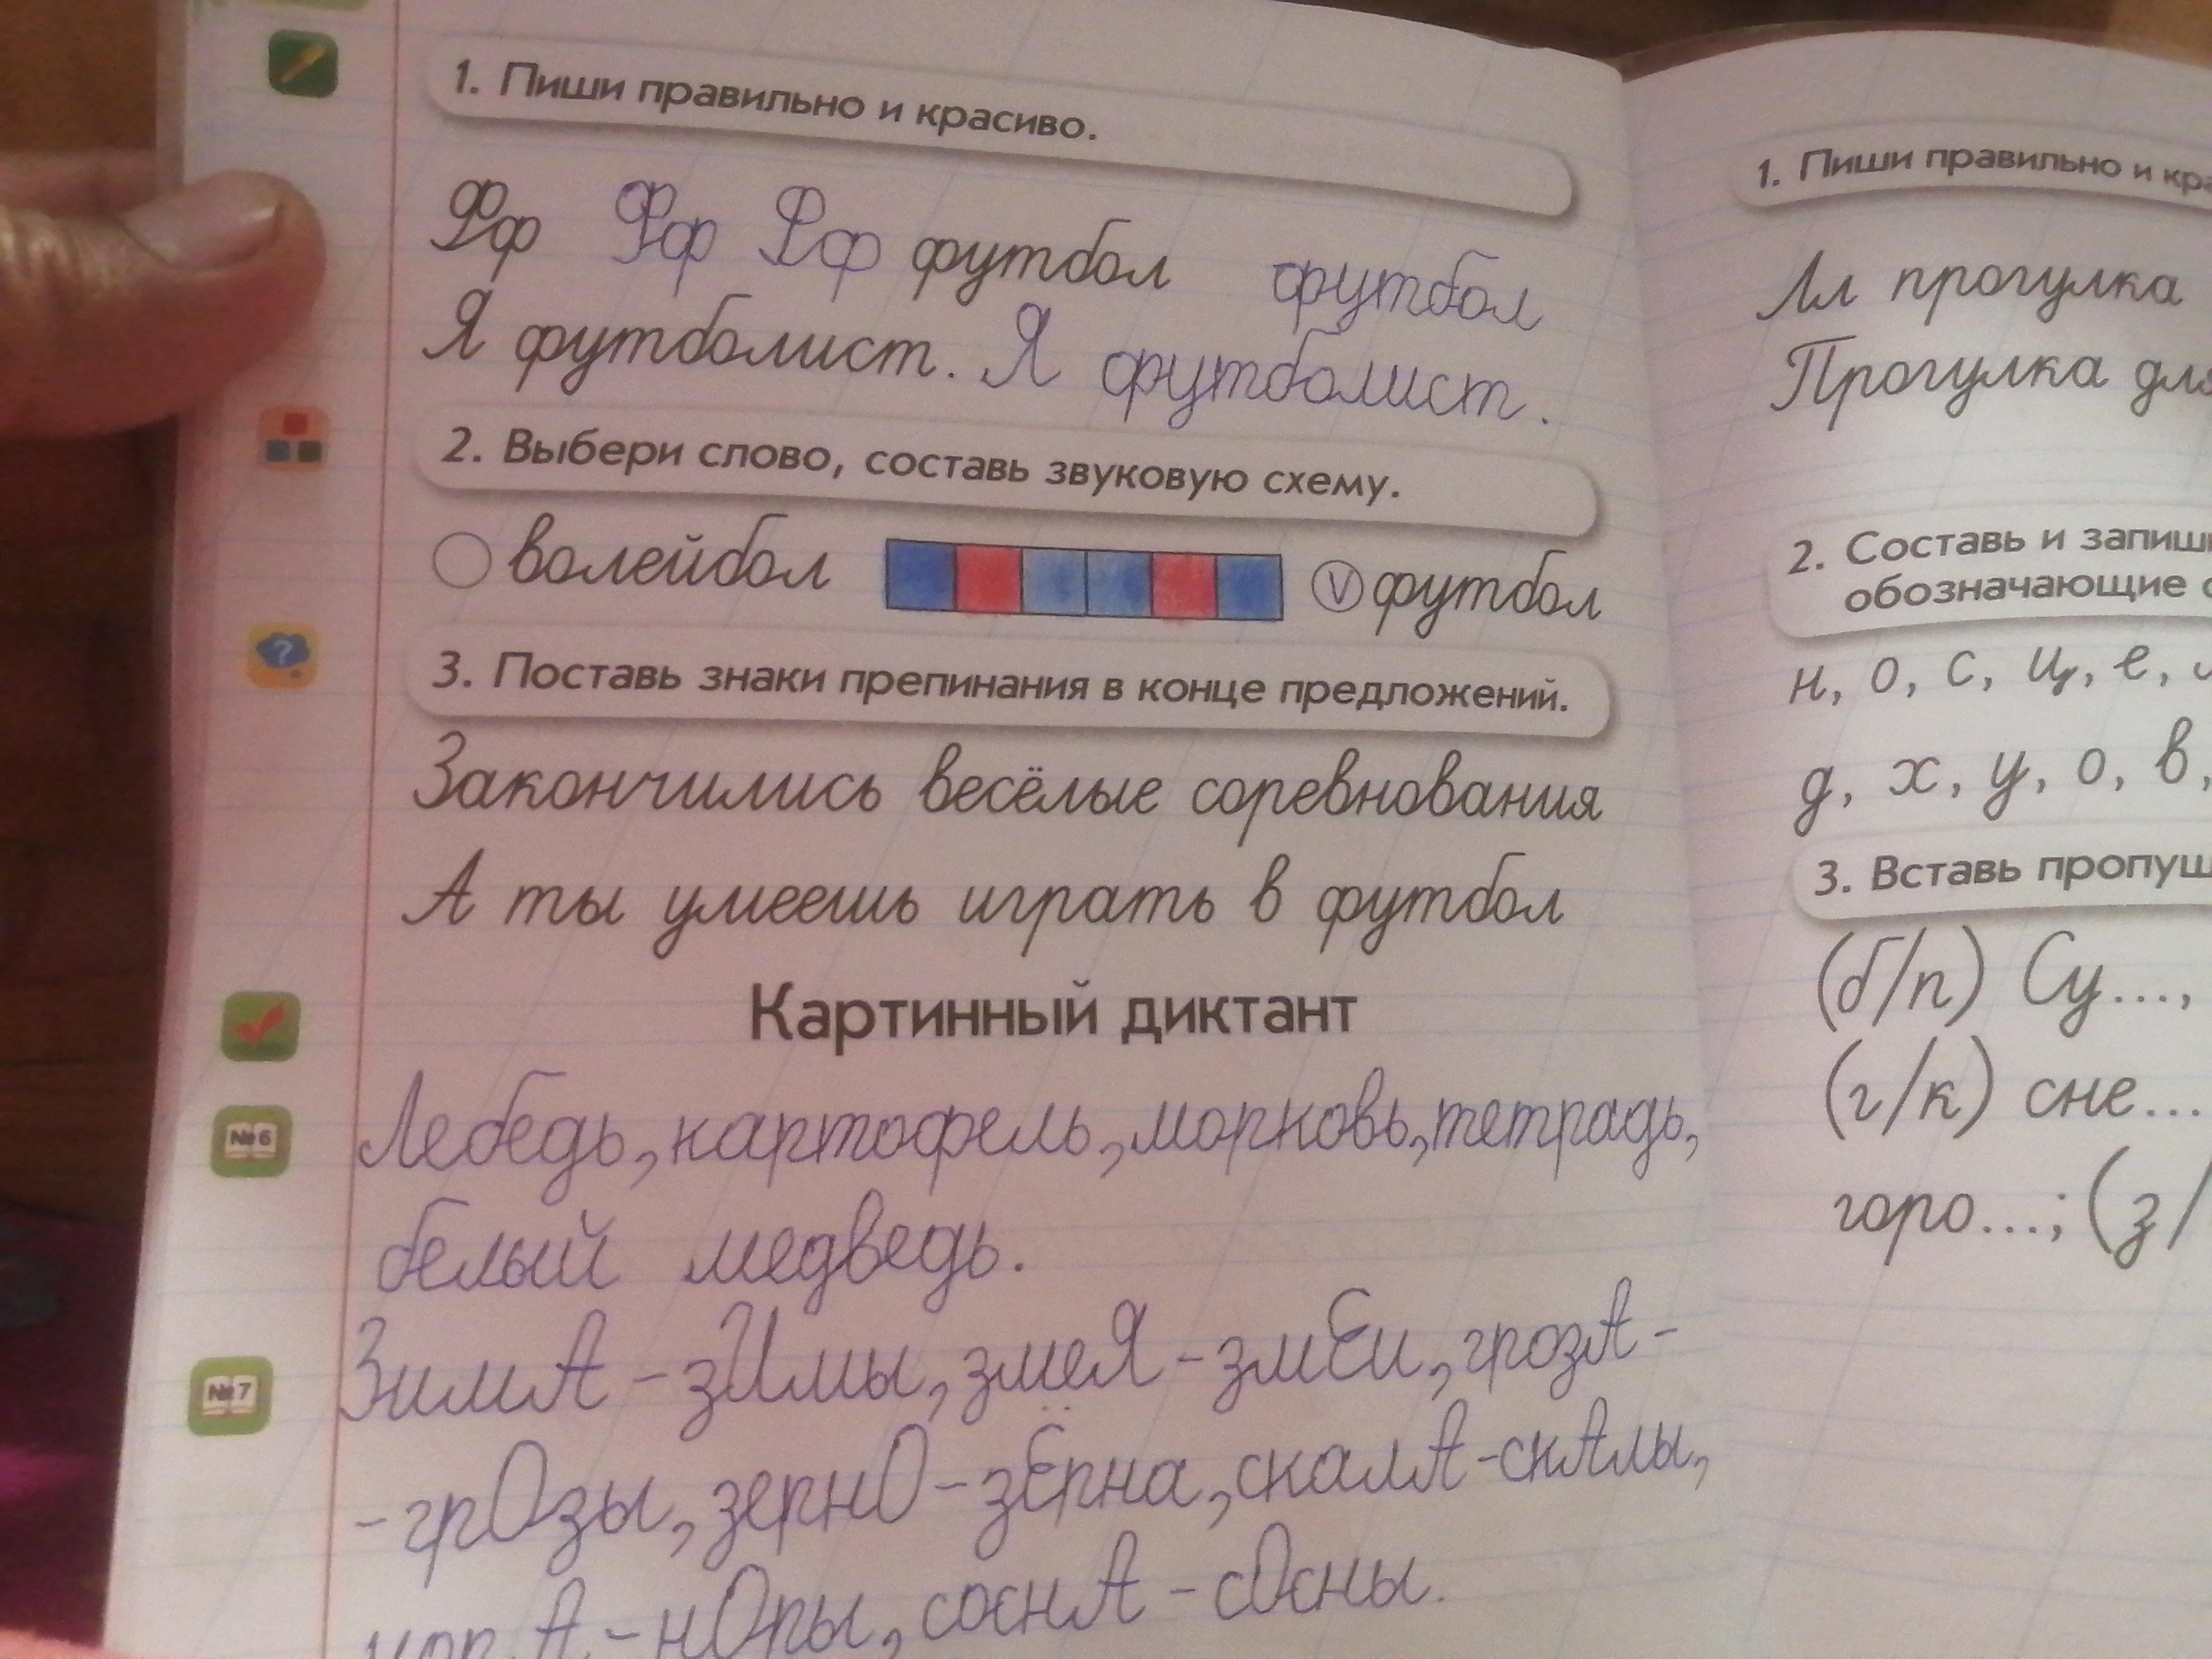 1. Пиши правильно и красиво.
Фф Фф Фф футбол футбол
Я футболист. Я футболист.
2. Выбери слово, составь звуковую схему.
волейбол V футбол
3. Поставь знаки препинания в конце предложений.
Закончились весёлые соревнования
А ты умеешь играть в футбол
Картинный диктант
№6 Лебедь, картофель, морковь, тетрадь,
белый медведь.
№7 ЗимА - зИмы, змеЯ - змЕи, грозА -
- грОзы, зернО - зЁрна, скалА - скАлы,
- нОры, соснА - сОсны.
1. Пиши правильно и
Лл прогулка
Прогулка
2. Составь и
обозначающие
н, о, с, ц, е,
д, х, у, о, в,
3. Вставь
(б/п) Су...,
(г/к) сне...
горо...; (з/